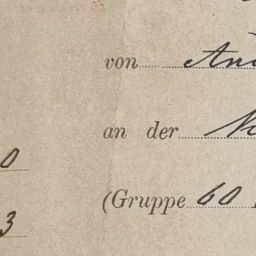 von
an der
0
(Gruppe 60
3